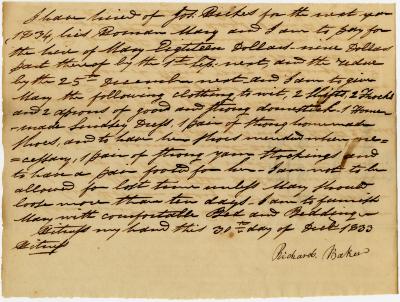 I have hired of Jos. Pickes for the next year
1834, his Woman Mary and I am to pay for
the hire of Mary Eighteen Dollars nine Dollars
part thereof by the 1st next, and the residue
by the 25th December next and I am to give
Mary the following clothing to wit, 2 Shifts, 2 Frocks
and 2 aprons of good and strong domestick 1 Home
=made Sunday Dress 1 pair of strong
Shoes, and to have her Shoes mended when ne=
=cessary, 1 pair of strong yarn Stockings and
to have a pair footed for her – I am not to be
allowed for lost time unless Mary should
loose more than ten days. I am to furnish
Mary with comfortable Bed and Bedding
Witness my hand this 30th day of Decr 1833
Witness
Richard. Baker